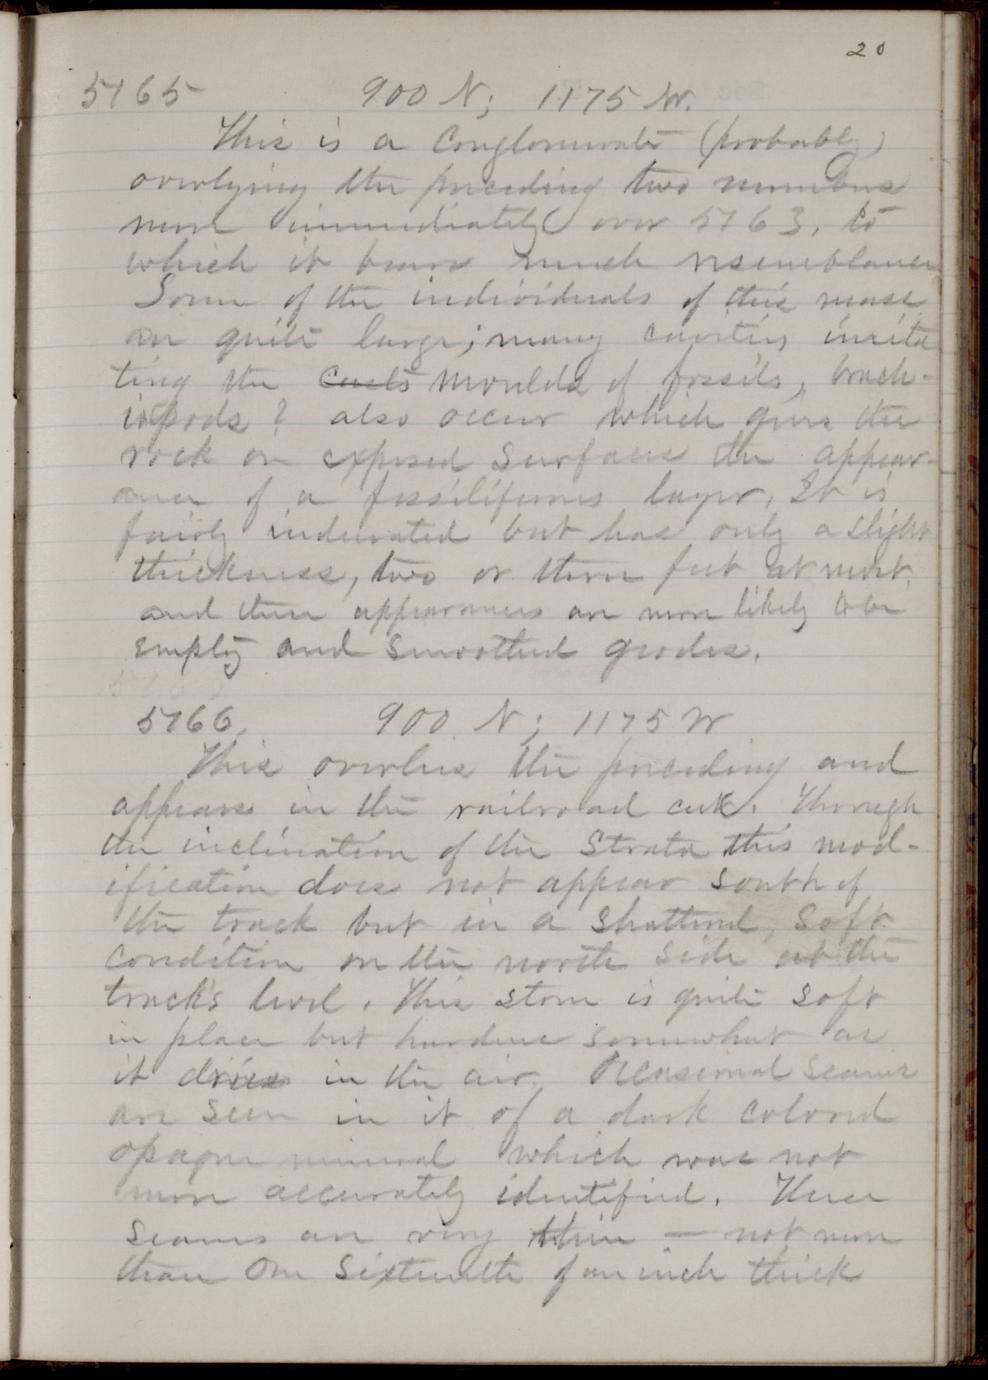 20
5165 900 N; 1175 W.
This is a conglomerate (probably)
overlying the preceding two numbers
more immediately over 5163, to
which it bears much resemblance
Some of the individuals of this mass
are quite large; many cavities imita
ting the casts moulds of fossils, brach-
iopods? also occur which gives the
rock on exposed surfaces the appear-
ance of a fossiliferous layer. It is
fairly indurated but has only a slight
thickness, two or three feet at most,
and these appearances are more likely to be
empty and smoothed geodes.
5166. 900 N; 1175 W
This overlies the preceding and
appears in the railroad cut. Through
the inclination of the strata this mod-
ification does not appear south of
the track but in a shattered, soft
condition on the north side at the
track's level. This stone is quite soft
in place but hardens somewhat as
it dries in the air. Occasional seams
are seen in it of a dark colored
opaque mineral which was not
more accurately identified. These
seams are very thin — not more
than one sixteenth of an inch thick